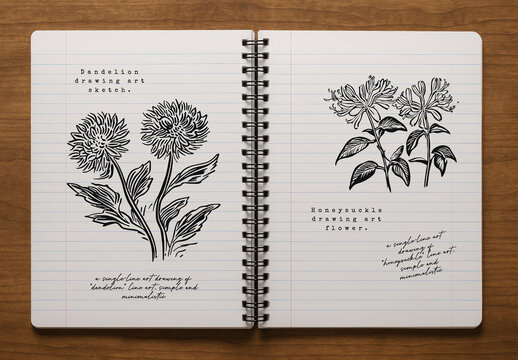 Dandelion
drawing art
sketch.
a single line art drawing of
"dandelion" line art, simple and
minimalistic
Honeysuckle
drawing art
flower.
a single line art
drawing of
"honeysuckle" line art,
simple and
minimalistic